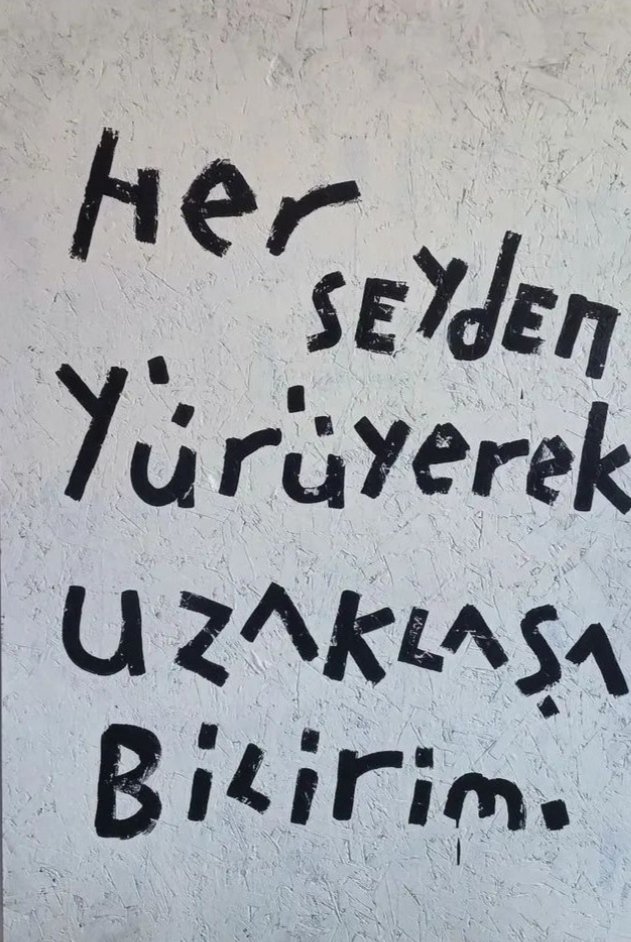 Her
SEYdEn
Yürüyerek
UZAKLAŞA
BiLirim.